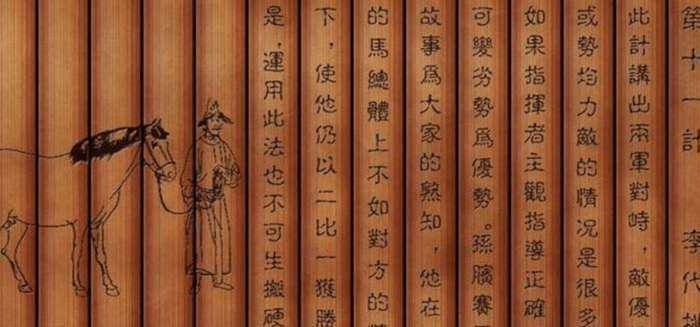 第十一計 李代桃
此計講出兩軍對峙，敵優
或勢均力敵的情況是很多
如果指揮者主觀指導正確
可變劣勢為優勢。孫臏賽
故事為大家的熟知，他在
的馬總體上不如對方的
下，使他仍以二比一獲勝
是，運用此法也不可生搬硬